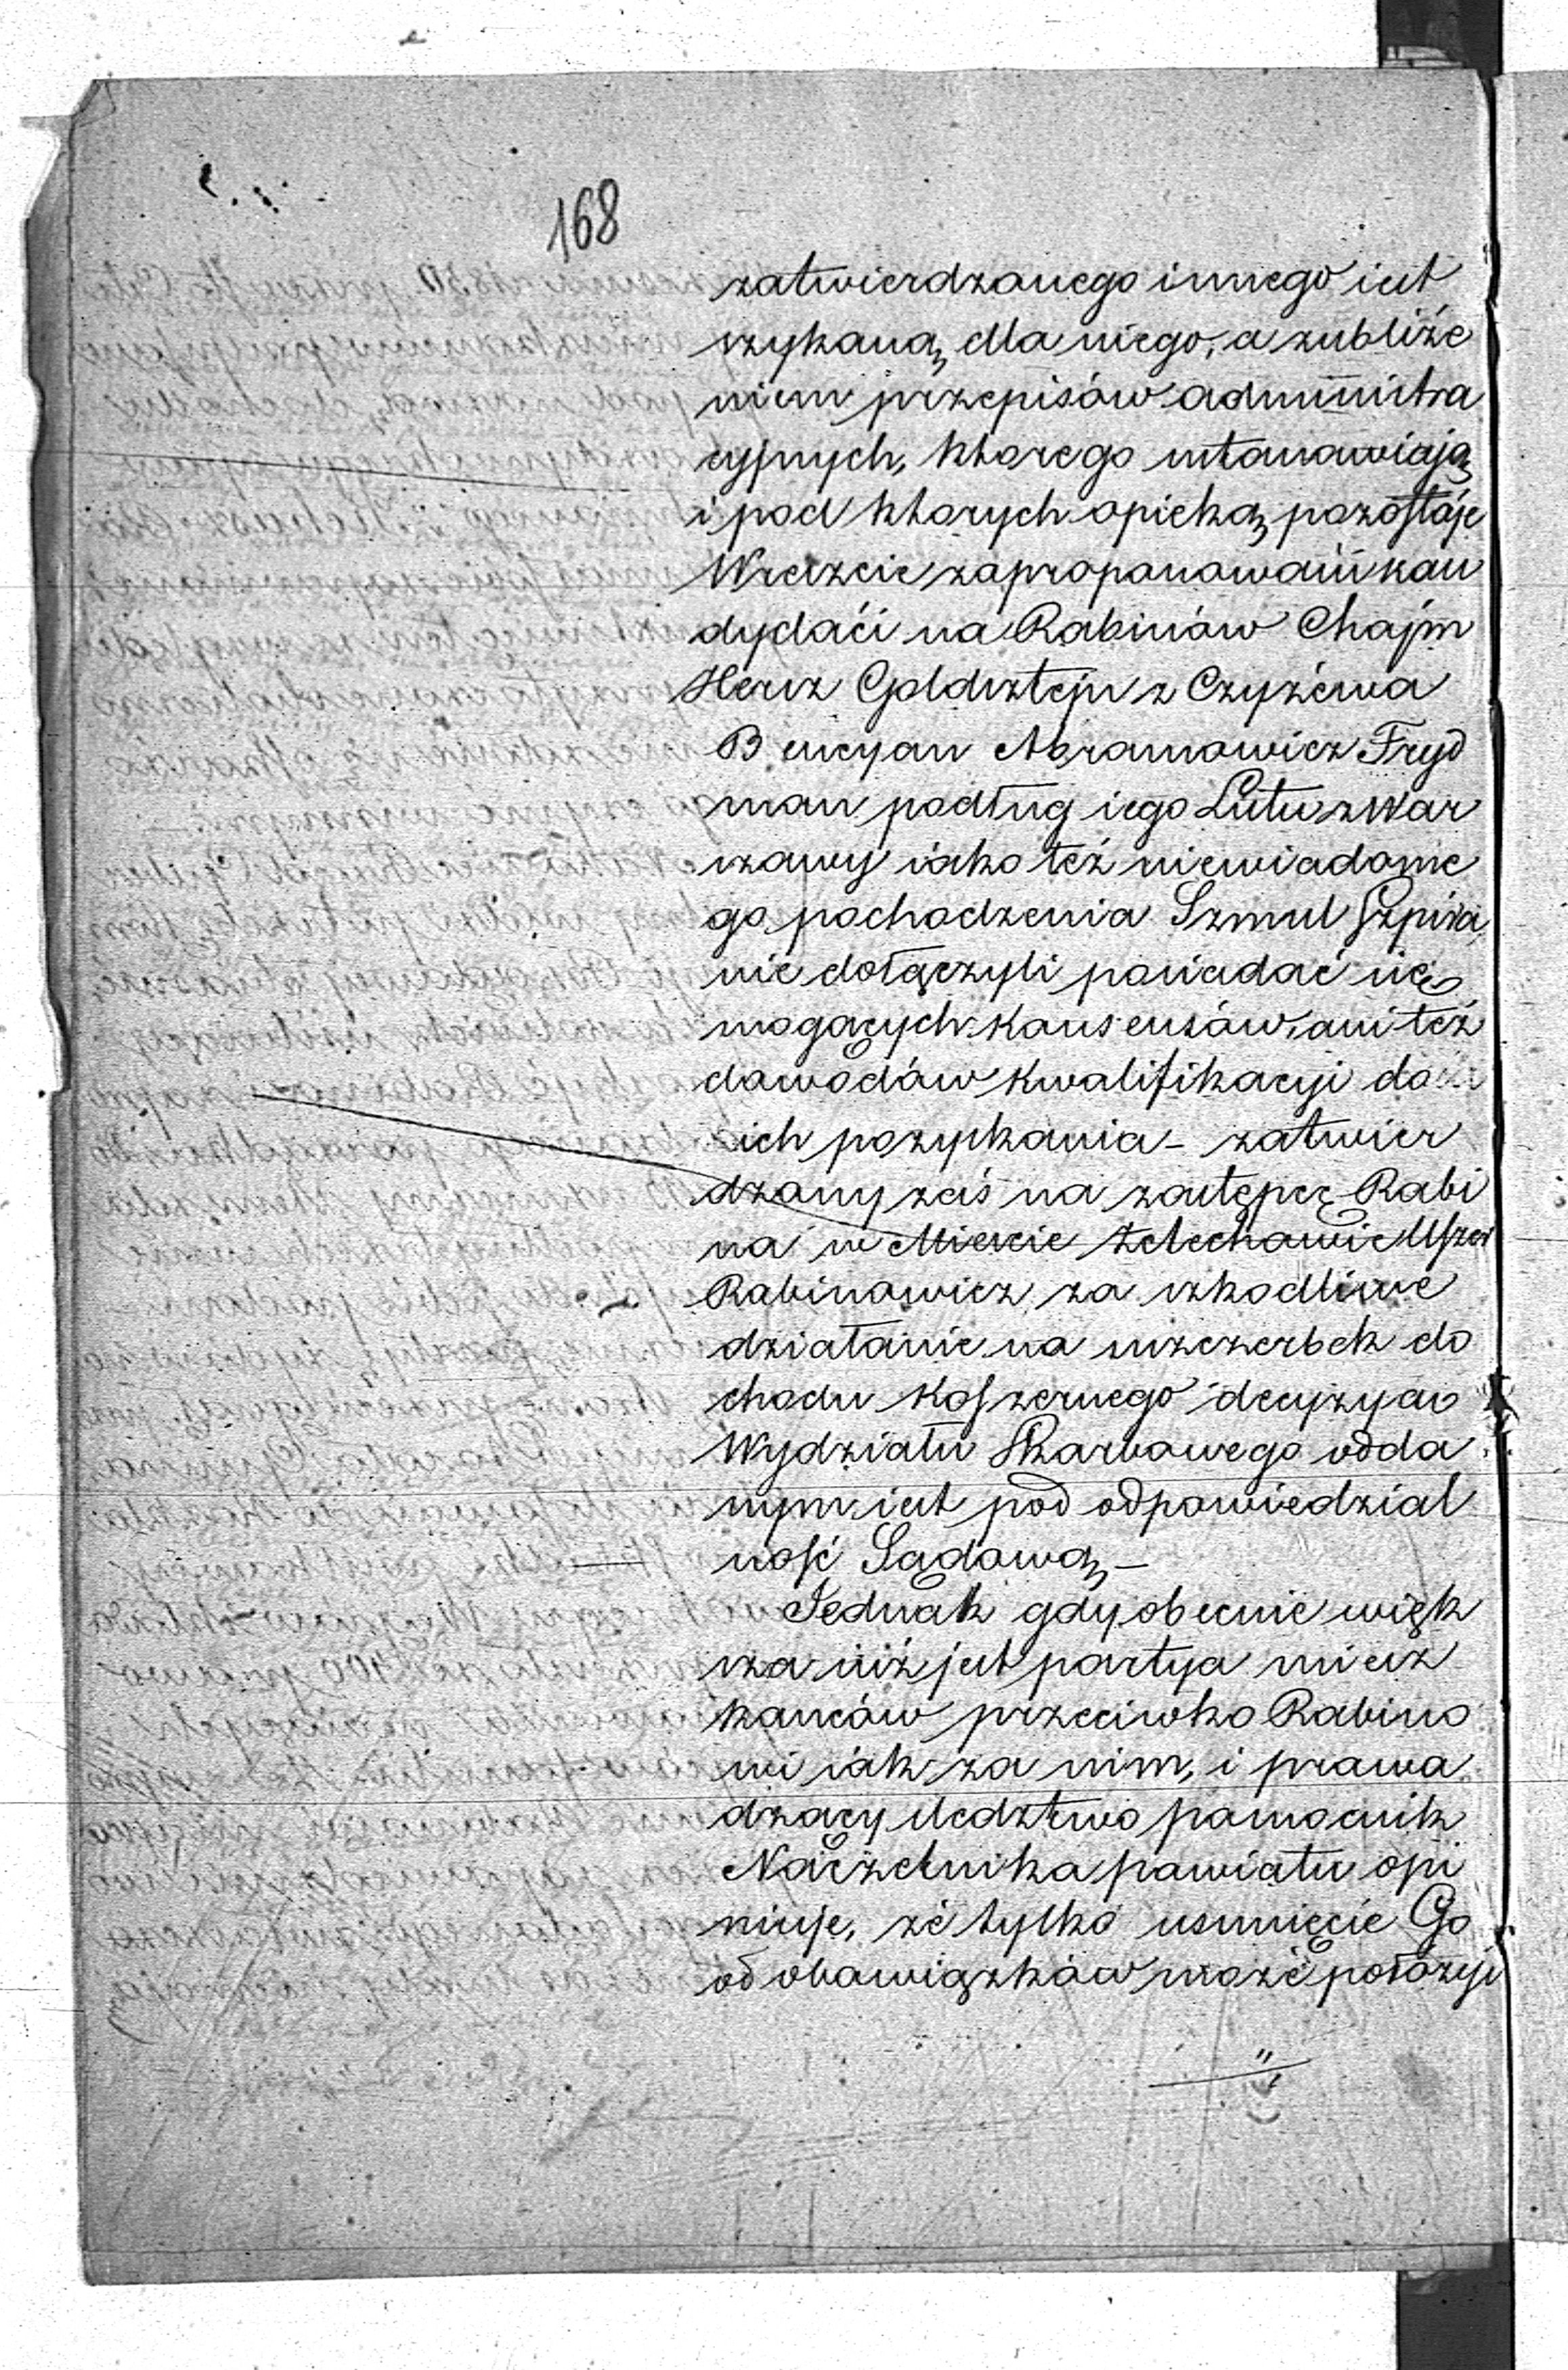 168
zatwierdzonego innego iest
szykaną dla niego, a zubliże
niem przepisów administra
cyjnych, którego ustanawiają
i pod których opieką pozostaje
Wreszcie zaproponowani kan
dydaci na Rabinów Chajm
Hersz Goldsztejn z Czyżewa
Bencyan Abramowicz Fryd
man podług iego Listu z War
szawy iako też niewiadome
go pochodzenia Szmul Szpira
nie dołączyli posiadać nie
mogących konsensów, ani też
dowodów kwalifikacyi do
ich pozyskania - zatwier
dzony zaś na zastępcę Rabi
na w Mieście Żelechowie
Rabinowicz za szkodliwe
działanie na uszczerbek do
chodu koszernego decyzyą
Wydziału Skarbowego odda
nym iest pod odpowiedzial
ność Sądową -
Jednak gdy obecnie więk
sza iuż jest partya miesz
kańców przeciwko Rabino
wi iak za nim, i prowa
dzący śledztwo pomocnik
Naczelnika powiatu opi
niuje, że tylko usunięcie Go
od obowiązków może położyć